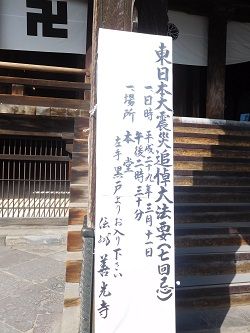 東日本大震災追悼大法要(七回忌)
一日時 平成二十九年三月十一日
午後二時三十分
一場所 本堂
左手 黒戸よりお入り下さい
善光寺